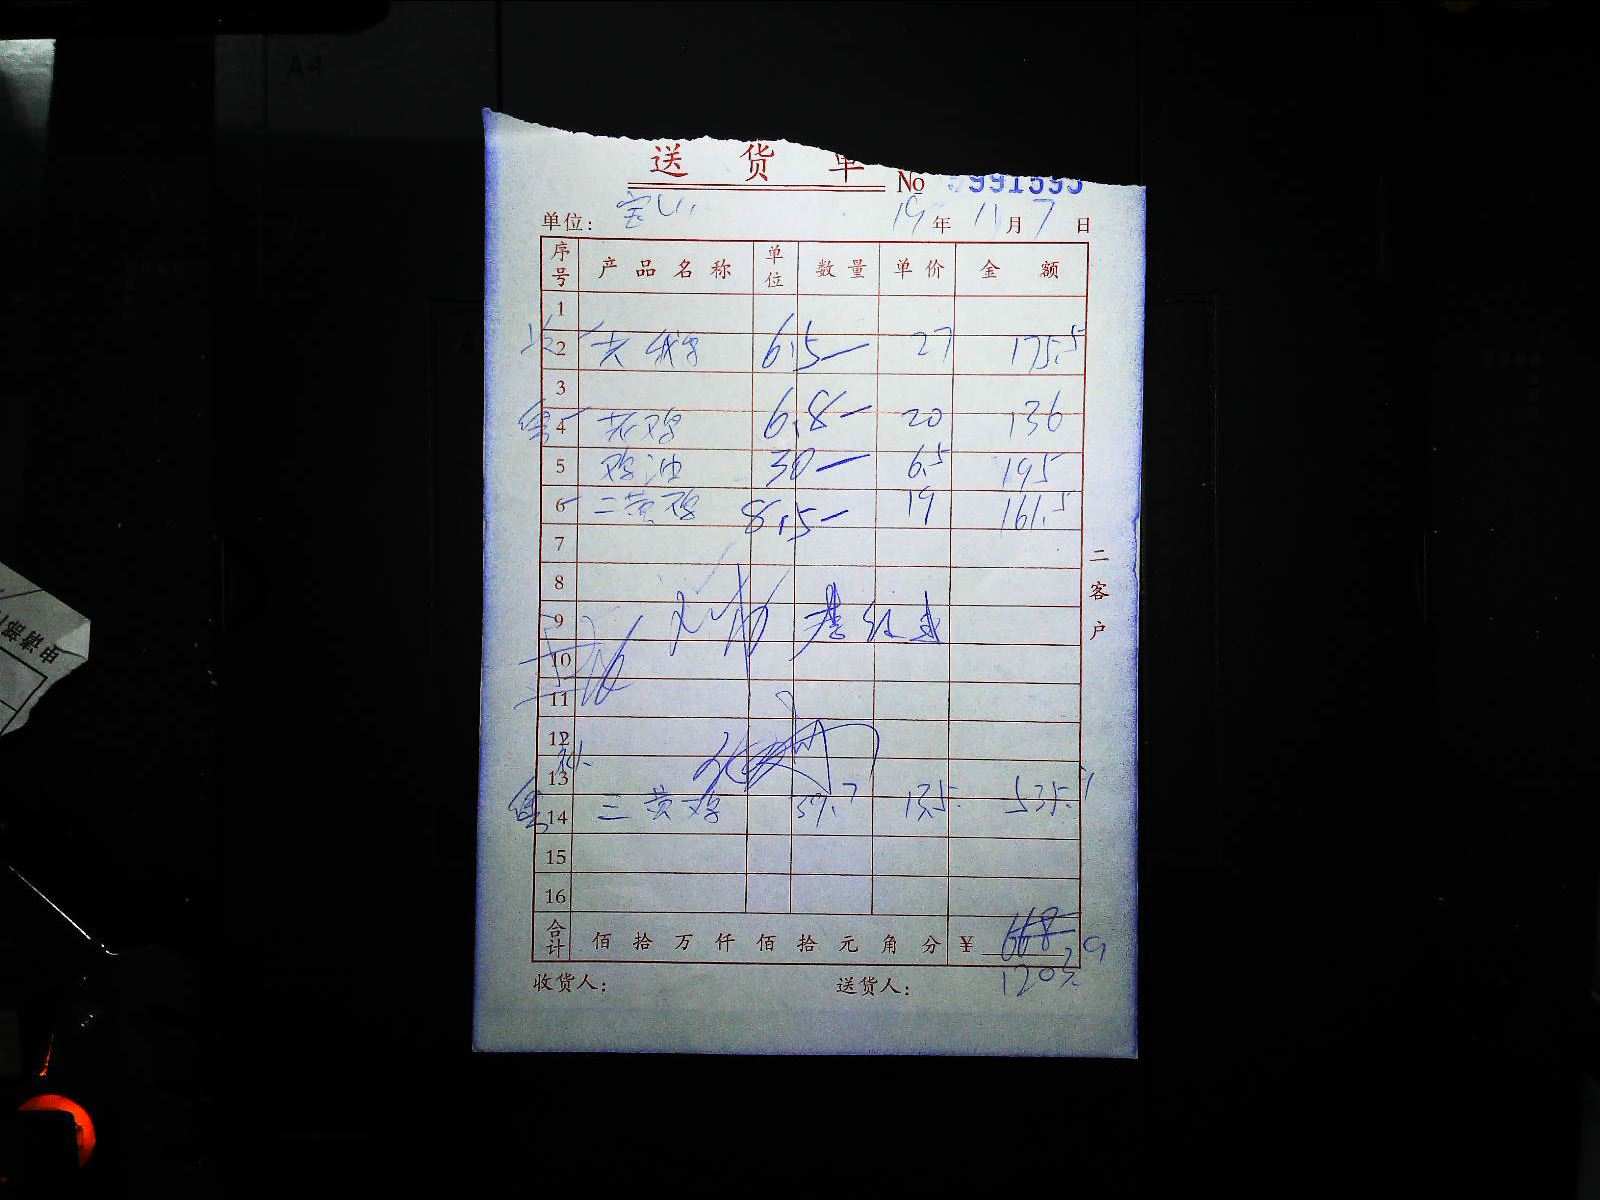 送货单
No 9991595
单位: 宝山 19年11月7日
序号 产品名称 单位 数量 单价 金额
1
2 6.5— 27 175.5
3
4 老鸡 6.8— 20 136
5 鸡油 30— 6.5 195
6 三黄鸡 8.5— 19 161.5
7
8
9
10
11
12
13
14 三黄鸡 39.7 13.5 535.9
15
16
合计 佰拾万仟佰拾元角分 ¥ 668
1203.9
收货人: 送货人:
二客户
A4
申请部门